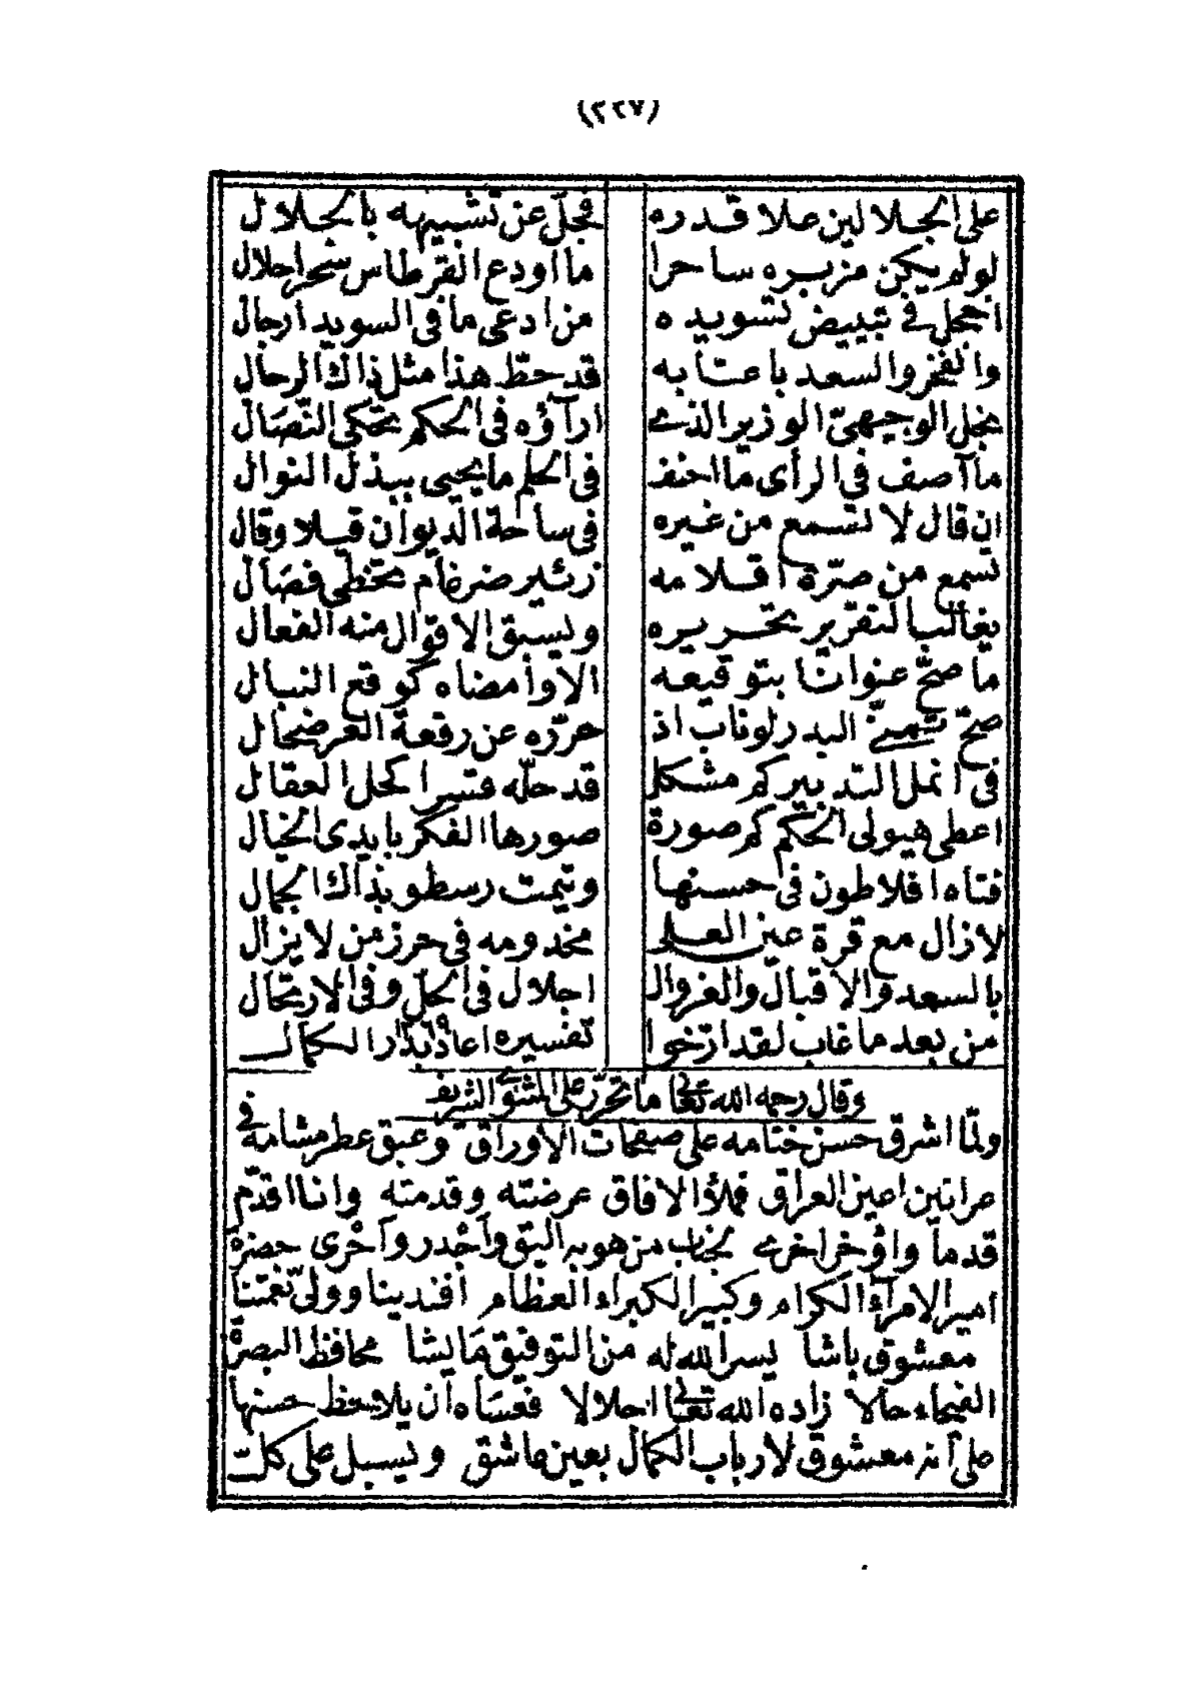 (٢٢٧)
على الجلالين علا قدره فجلّ عن تشبيهه بالجلال
لو لم يكن مزبره ساحرا ما اودع القرطاس سحرا حلال
اخجل في تبييض تسويده من ادعى ما في السويدا رجال
والفخر والسعد باعتابه قد حطّ هذا مثل ذاك الرحال
نجل الوجيهيّ الوزير الذي ارآؤه في الحكم تحكي النّصال
ما آصف في الرأى ما احنف في الحلم ما يحيى ببذل النوال
ان قال لا تسمع من غيره في ساحة الديوان قيلا وقال
تسمع من صرّة اقلامه زئير ضرغام تخطى فصال
يغالب التقرير تحريره ويسبق الاقوال منه الفعال
ما صحّ عنوانا بتوقيعه الا وامضاه كوقع النبال
صحّ تمنّي البدر لو ناب اذ حرّره عن رقعة العرضحال
في انمل التدبير كم مشكل قد حلّه فتسرا كحل العقال
اعطى هيولى الحكم كم صورة صورها الفكر بايدى الخيال
فتاه افلاطون في حسنها وتيمت رسطو بذاك الجمال
لا زال مع قرة عين العلى مخدومه في حرز من لا يزال
بالسعد والاقبال والعز والـ اجلال في الحلّ وفي الارتحال
من بعد ما غاب لقد ارّخوا تفسيره اعاذ بدار الكمال
وقال رحمه الله تعالى ما تحرّر على المثنوي الشريف
ولمّا اشرق حسن ختامه على صفحات الاوراق وعبق عطر مشامه في
عرانين اعين العراق فملاؤا الافاق عرضته وقدمته وانا اقدّم
قدما واؤخر اخرى لجناب من هو به اليق واجدر وآحرى حضرة
امير الامرآء الكرام وكبير الكبراء العظام افندينا وولىّ نعمتنا
معشوق باشا يسر الله له من التوفيق ما يشا محافظ البصرة
الفيحاء حالا زاده الله تعالى اجلالا فعساه ان يلاحظ حسنها
على انه معشوق لارباب الكمال بعين عاشق ويسبل على كلّ